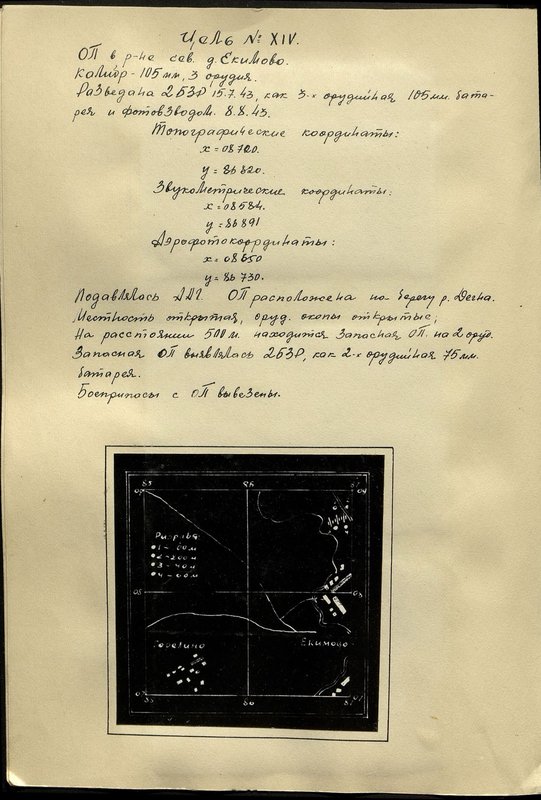 Цель № XIV.
ОП в р-не сев. д. Екимово.
Калибр - 105 мм, 3 орудия.
Разведана 2БЗР 15.7.43, как 3-х орудийная 105 мм. бата-
рея и фотовзводом. 8.8.43.
Топографические координаты:
x = 08700.
y = 86820.
Звукометрические координаты:
x = 08584.
y = 86891
Аэрофотокоординаты:
x = 08650
y = 86730.
Подавлялась ОП расположена на берегу р. Десна.
Местность открытая, оруд. окопы открытые;
На расстоянии 500 м. находится запасная ОП. на 2 оруд.
Запасная ОП выявлялась 2БЗР, как 2-х орудийная 75 мм.
батарея.
Боеприпасы с ОП вывезены.
85 86 87
09 09
Разрывы
2 - 200 м
08 08
Екимово
07 07
85 86 87